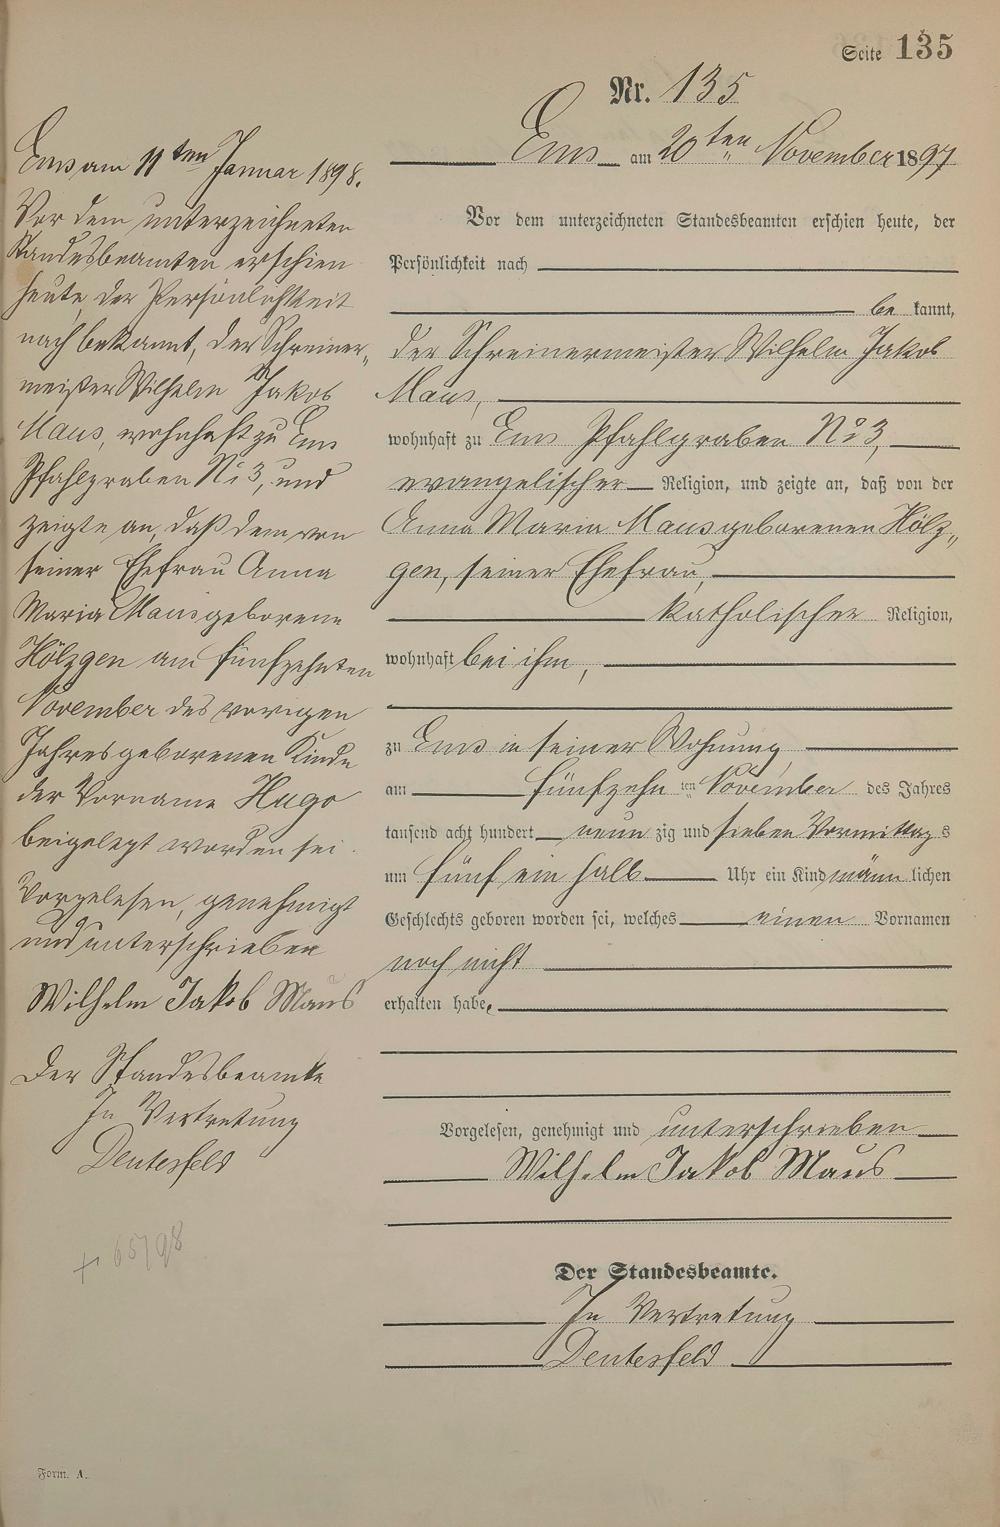 Seite 135
Nr. 135
Ems am 20ten November 1897
Vor dem unterzeichneten Standesbeamten erschien heute, der
Persönlichkeit nach
be kannt,
der Schreinermeister Wilhelm Jakob
Maus,
wohnhaft zu Ems Pfahlgraben No 3,
evangelischer Religion, und zeigte an, daß von der
Anna Maria Maus geborenen Hölz„
gen, seiner Ehefrau,
katholischer Religion,
wohnhaft bei ihm,
zu Ems in seiner Wohnung
am fünfzehn ten November des Jahres
tausend acht hundert neun zig und sieben Vormittag s
um fünf ein halb Uhr ein Kind männ lichen
Geschlechts geboren worden sei, welches einen Vornamen
noch nicht
erhalten habe.
Vorgelesen, genehmigt und unterschrieben
Wilhelm Jakob Maus
Der Standesbeamte.
In Vertretung
Deutesfeld
Ems am 11ten Januar 1898.
Vor dem unterzeichneten
Standesbeamten erschien
heute, der Persönlichkeit
nach bekannt, der Schreiner„
meister Wilhelm Jakob
Maus, wohnhaft zu Ems
Pfahlgraben No 3, und
zeigte an, daß dem von
seiner Ehefrau Anna
Maria Maus geborene
Hölzgen am fünfzehnten
November des vorigen
Jahres geborenen Kinde
der Vorname Hugo
beigelegt worden sei.
Vorgelesen, genehmigt
und unterschrieben
Wilhelm Jakob Maus
Der Standesbeamte
In Vertretung
Deutesfeld
+ 65/98
Form. A.